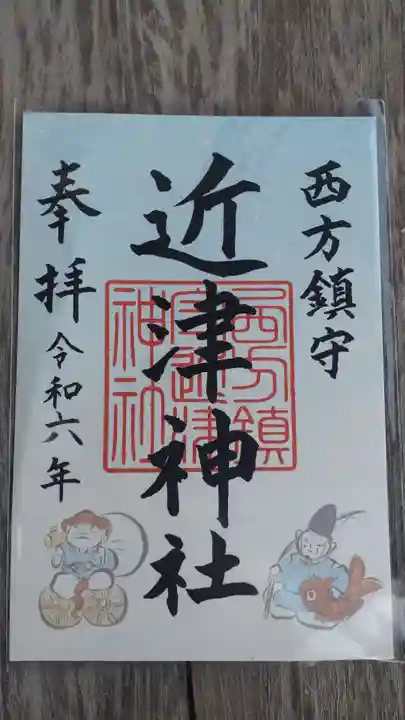 西方鎮守
近津神社
奉拝 令和六年
西方鎮
守近津
神社